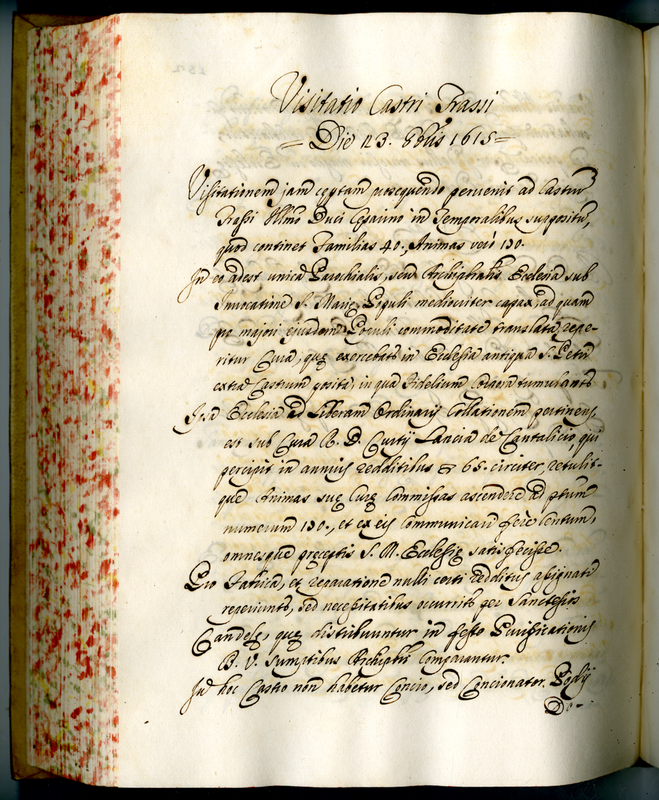 Visitatio Castri Trassi
Die 23. 8bris 1615
Visitationem jam cęptam prosequendo pervenit ad Castrū
Trassi Illmo Duci Cesarino in Temporalibus suppositū,
quod continet Familias 40., Animas verò 130.
In eo adest unica Parochialis, seu Archiplralis Ecclesia sub
Invocatine S. Marię Populi mediocriter capax, ad quam
pro majori ejusdem Populi commoditate translata repe-
ritur Cura, quę exercebatr in Ecclesia antiqua S. Petri
extra Castrum posita, in qua Fidelium Corpora tumulantr
Ipsa Ecclesia ad liberam Ordinarij Collationem pertinens
est sub Cura R. D. Curtij Lancia de Cantalicio, qui
percipit in annuis redditibus 65. circiter, retulit-
que Animas suę Curę Commissas ascendere ad ptum
numerum 130., et ex eis Communicari ferè Centum,
omnesque pręceptis S. M. Ecclesię satisfecisse.
Pro Fabrica, et reparatione nulli certi redditus assignati
reperiuntr, sed necessitatibus occurritr per Sanctesios
Candelę, quę distribuuntur in festo Purificationis
B. V. sumptibus Archipbri Comparantur.
In hoc Castro non habetur Concio, sed Concionator Podij
Do-